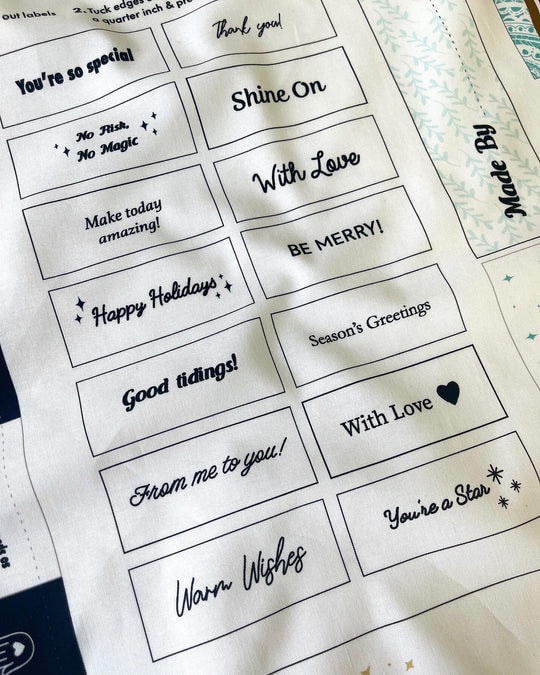 out labels
2. Tuck edges
a quarter inch &
Thank you!
You're so special
Shine On
No Risk,
No Magic
With Love
Make today
amazing!
BE MERRY!
Happy Holidays
Season's Greetings
Good tidings!
With Love
From me to you!
You're a Star
Warm Wishes
Made By